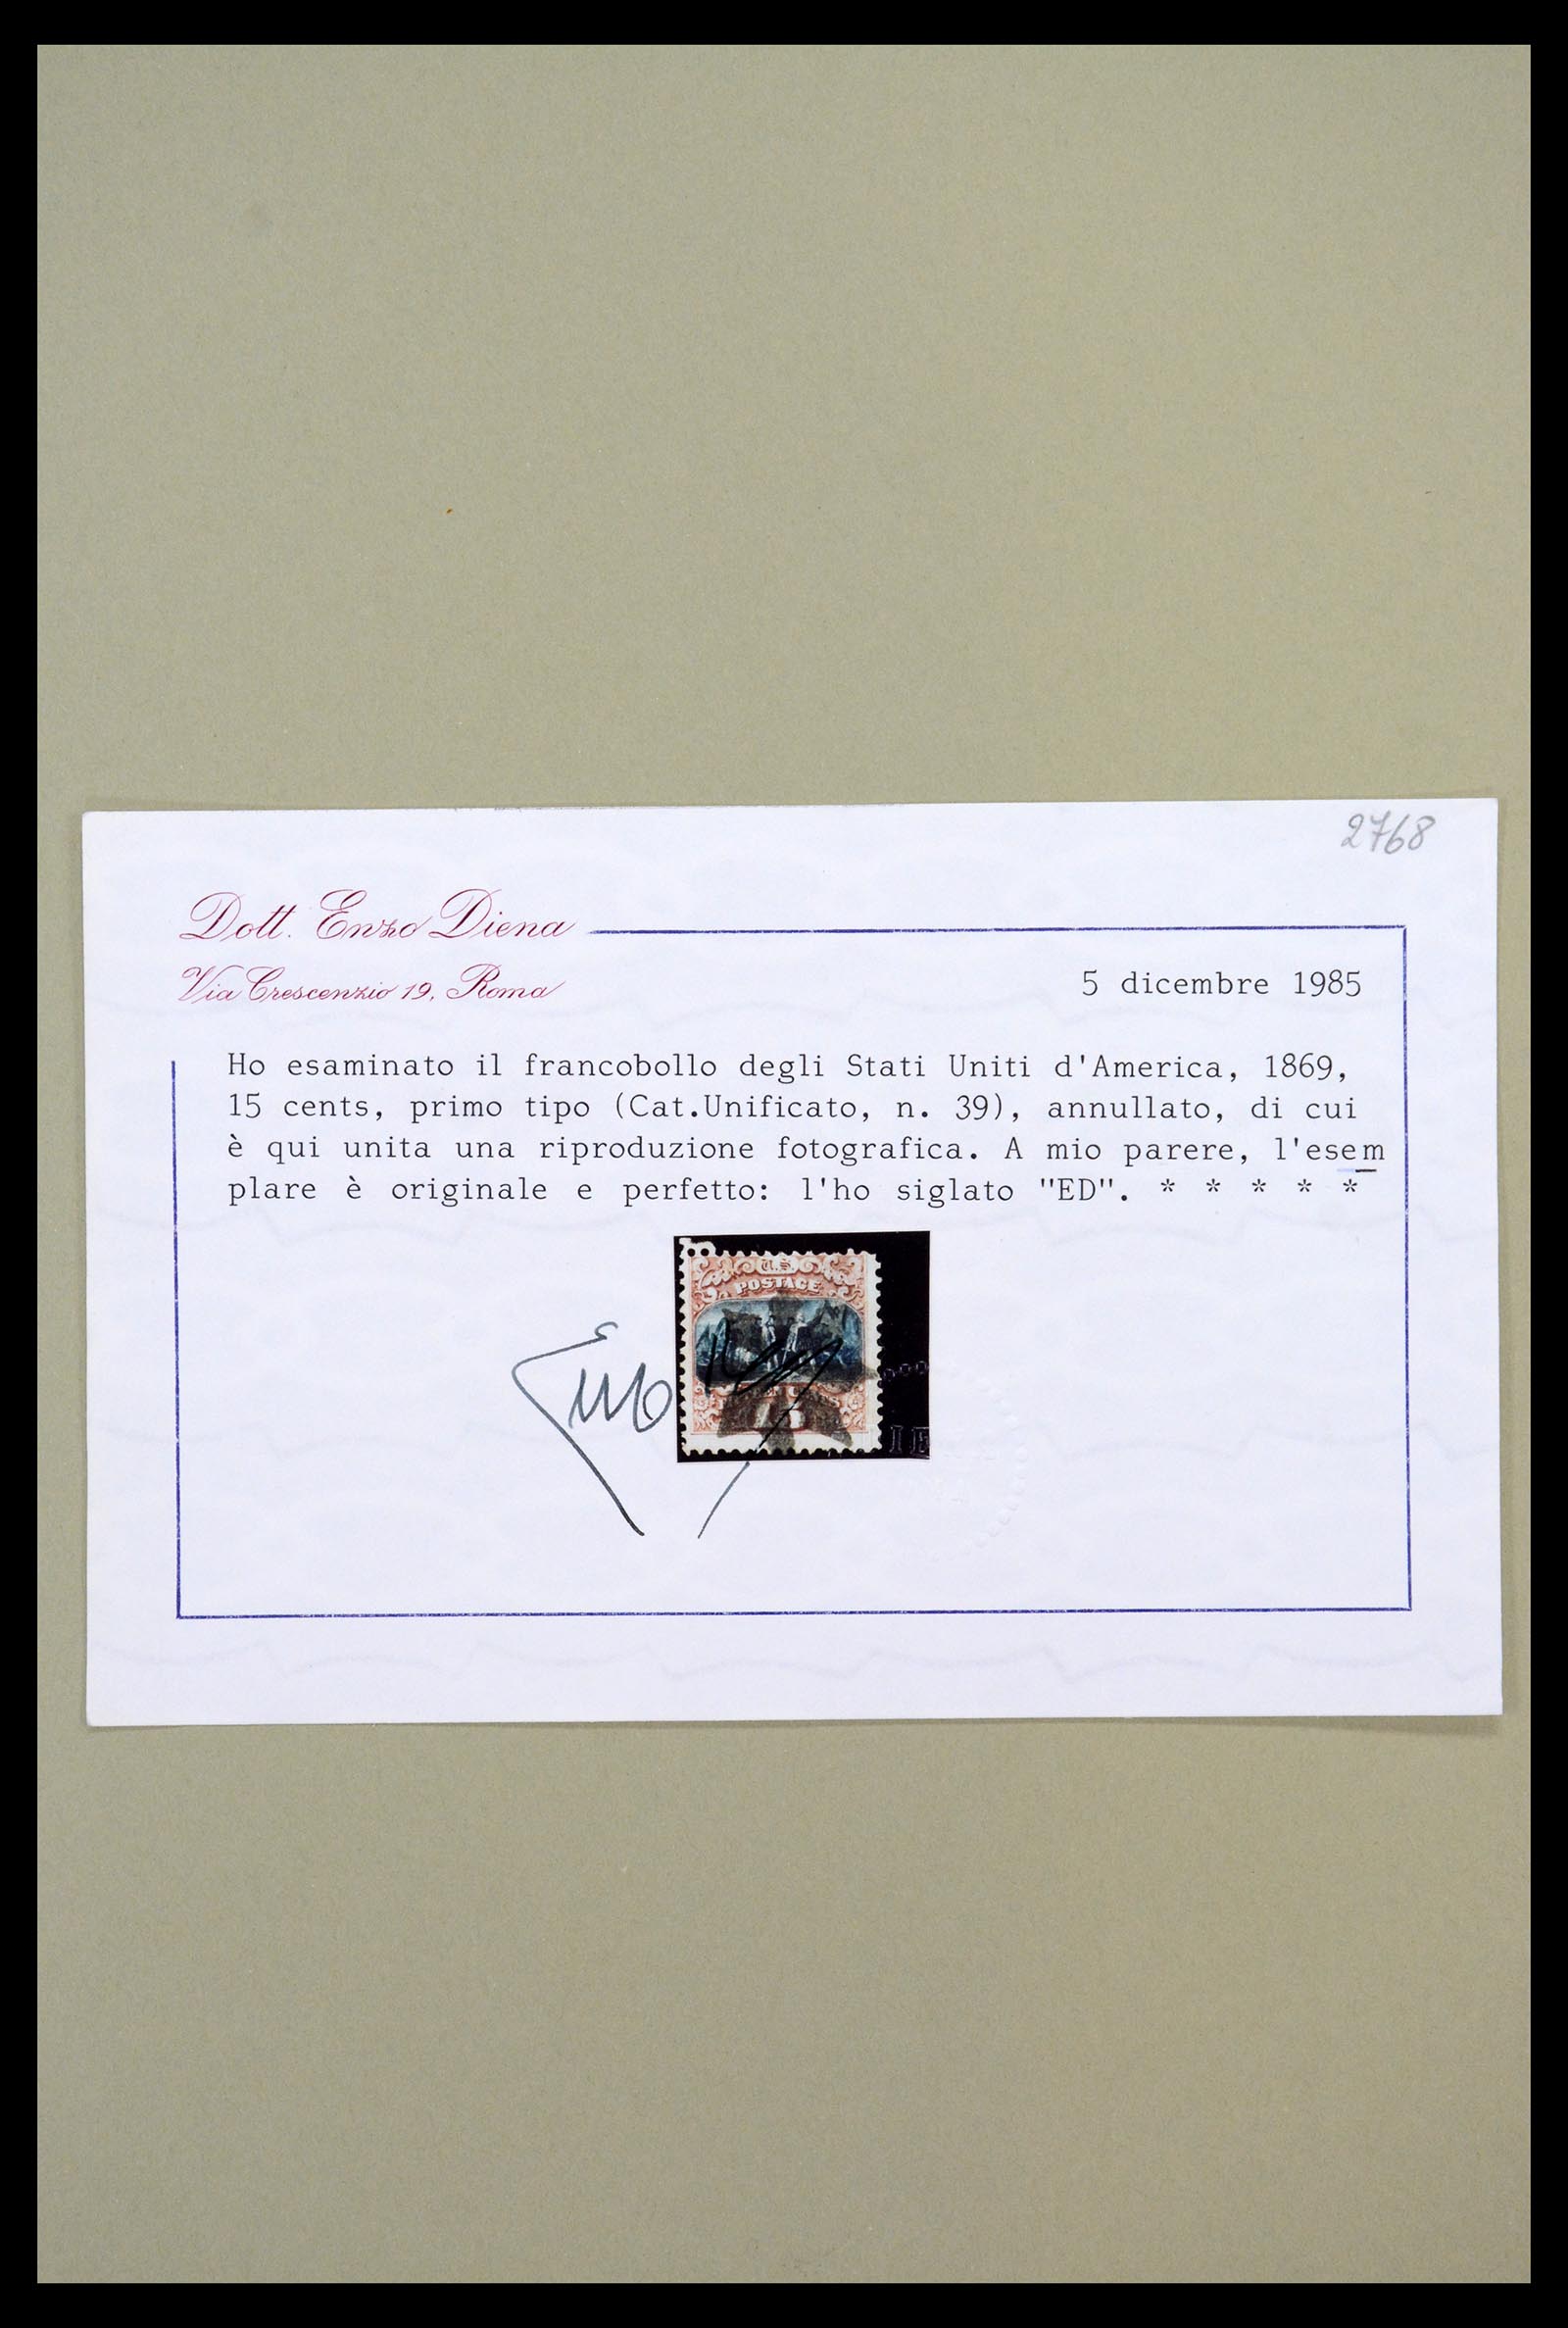 2768
Dott. Enzo Diena
Via Crescenzio 19, Roma
5 dicembre 1985
Ho esaminato il francobollo degli Stati Uniti d'America, 1869,
15 cents, primo tipo (Cat.Unificato, n. 39), annullato, di cui
è qui unita una riproduzione fotografica. A mio parere, l'esem
plare è originale e perfetto: l'ho siglato "ED". * * * * *
U.S.
POSTAGE